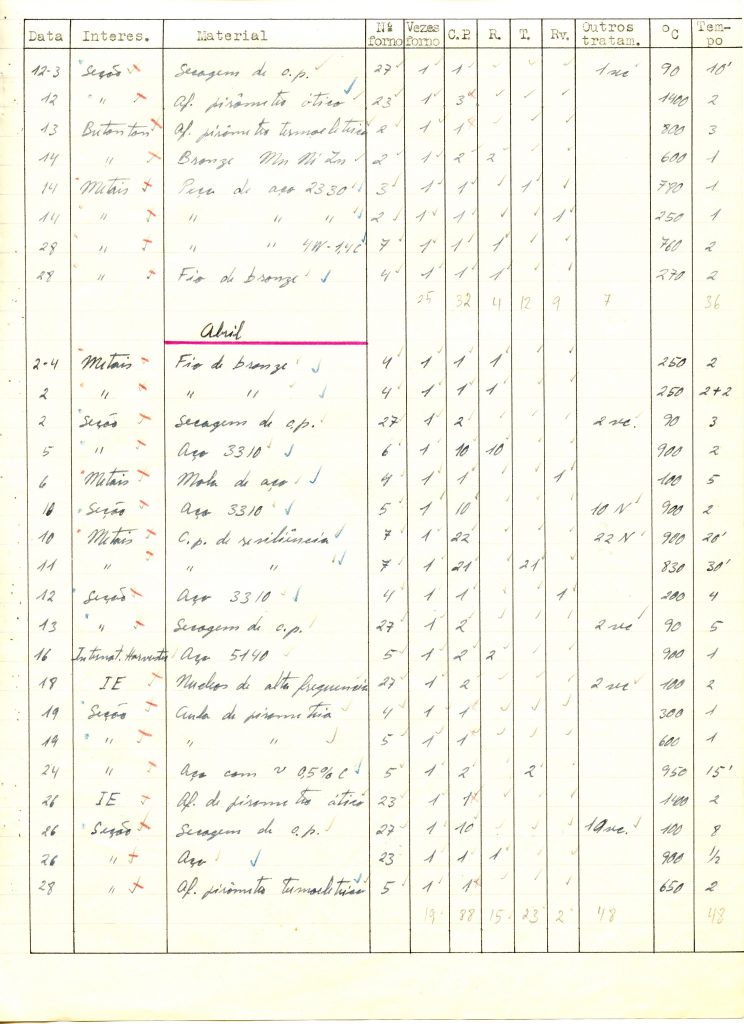 Data Interes. Material Nº forno Vezes forno C.P. R. T. Rv. Outros tratam. ºC Tempo
12-3 Seção Secagem de c.p. 27 1 1 1 sec 90 10'
12 " Af. pirômetro ótico 23 1 3 1400 2
13 Butantan Af. pirômetro termoeletrico 2 1 1 800 3
14 " Bronze Mn Ni Zn 2 1 2 2 600 1
14 Metais Peça de aço 2330 3 1 1 1 780 1
14 " " " " 2 1 1 1 250 1
28 " " " 4W-1,4C 7 1 1 1 760 2
28 " Fio de bronze 4 1 1 1 270 2
25 32 4 12 9 7 36
Abril
2-4 Metais Fio de bronze 4 1 1 1 250 2
2 " " " 4 1 1 1 250 2+2
2 Seção Secagem de c.p. 27 1 2 2 sec. 90 3
5 " Aço 3310 6 1 10 10 900 2
6 Metais Mola de aço 4 1 1 1 100 5
10 Seção Aço 3310 5 1 10 10 N 900 2
10 Metais C.p. de resiliência 7 1 22 22 N 900 20'
11 " " " 7 1 21 21 830 30'
12 Seção Aço 3310 4 1 1 1 200 4
13 " Secagem de c.p. 27 1 2 2 sec 90 5
16 Internat. Harvester Aço 5140 5 1 2 2 900 1
18 IE Nucleos de alta frequencia 27 1 2 2 sec 100 2
19 Seção Aula de pirometria 4 1 1 300 1
19 " " " 5 1 1 600 1
24 " Aço com ~ 0,5% C 5 1 2 2 950 15'
26 IE Af. de pirometro ótico 23 1 1 1400 2
26 Seção Secagem de c.p. 27 1 10 10 sec. 100 8
26 " Aço 23 1 1 1 900 1/2
28 " Af. pirômetro termoeletrico 5 1 1 650 2
19 88 15 23 2 48 48